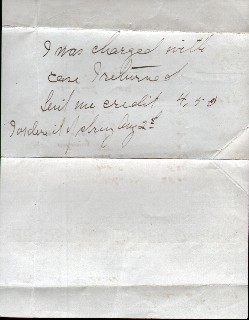 I was charged with
case I returned
me credit 4,50
I ordered it Aug 2d